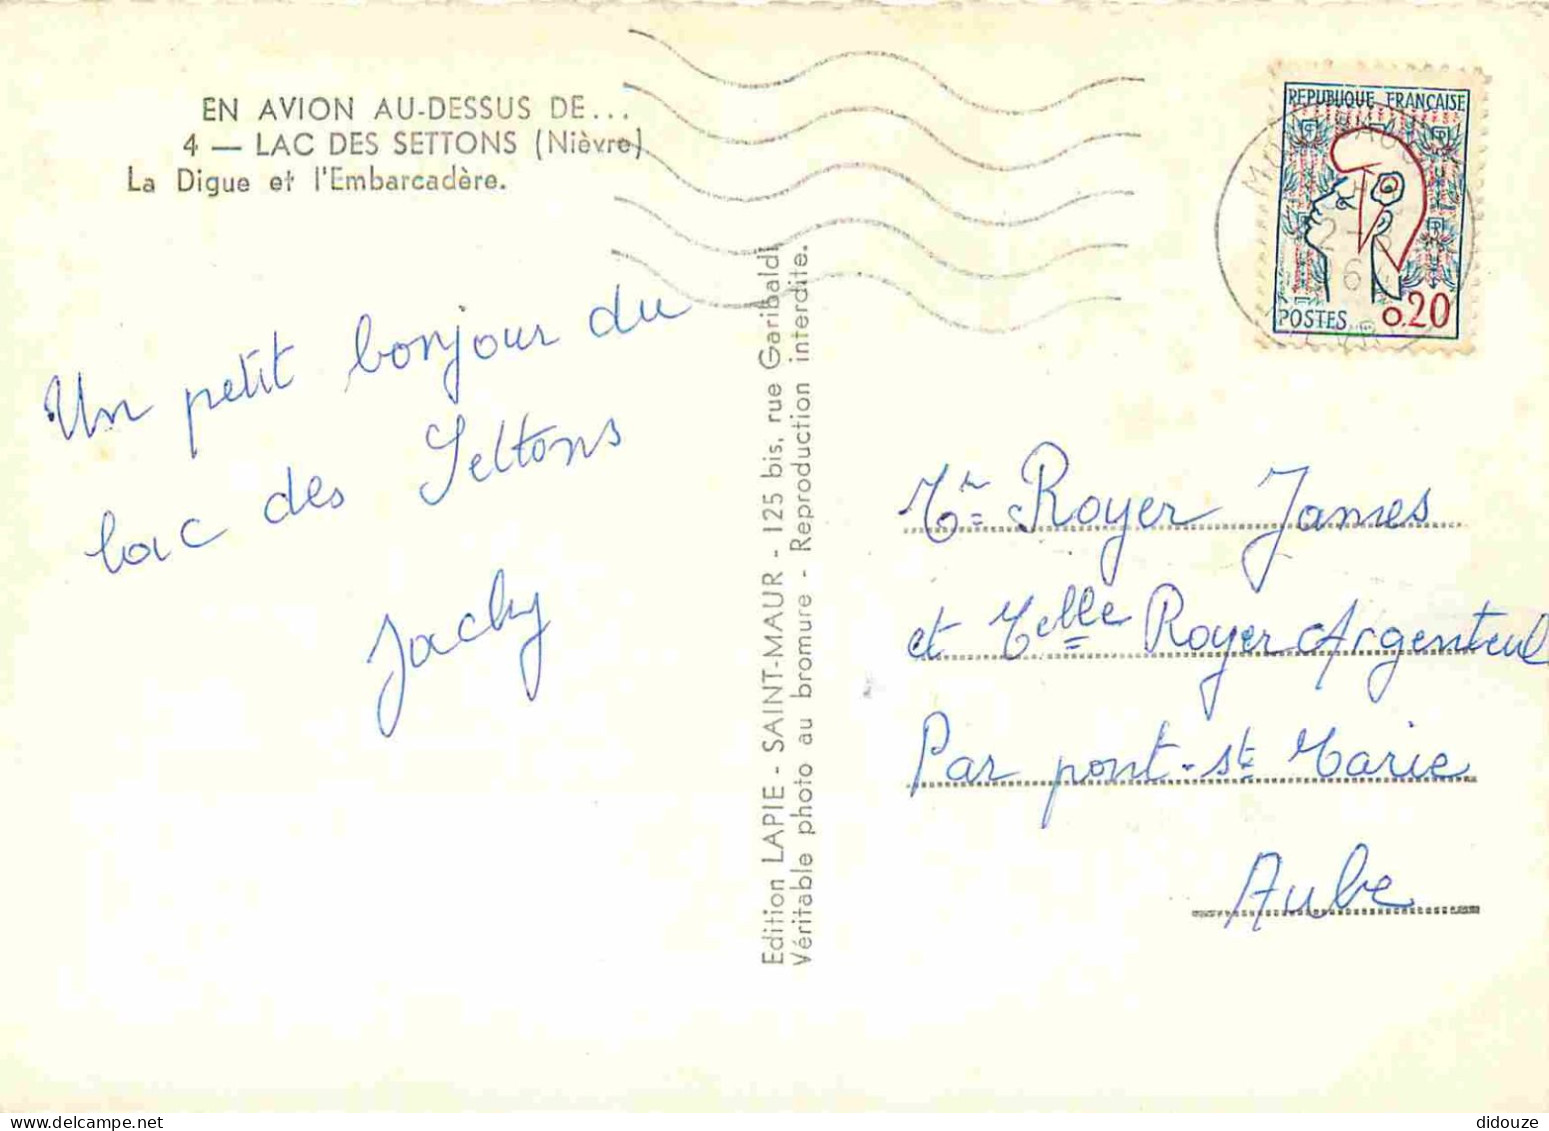 EN AVION AU-DESSUS DE...
4 — LAC DES SETTONS (Nièvre)
La Digue et l'Embarcadère.
Un petit bonjour du
lac des Settons
Jacky
Edition LAPIE - SAINT-MAUR - 125 bis, rue Garibaldi
Véritable photo au bromure - Reproduction interdite.
REPUBLIQUE FRANÇAISE
POSTES 0,20
Mr Royer James
et Melle Royer Argenteuil
Par pont-ste Marie
Aube
didouze